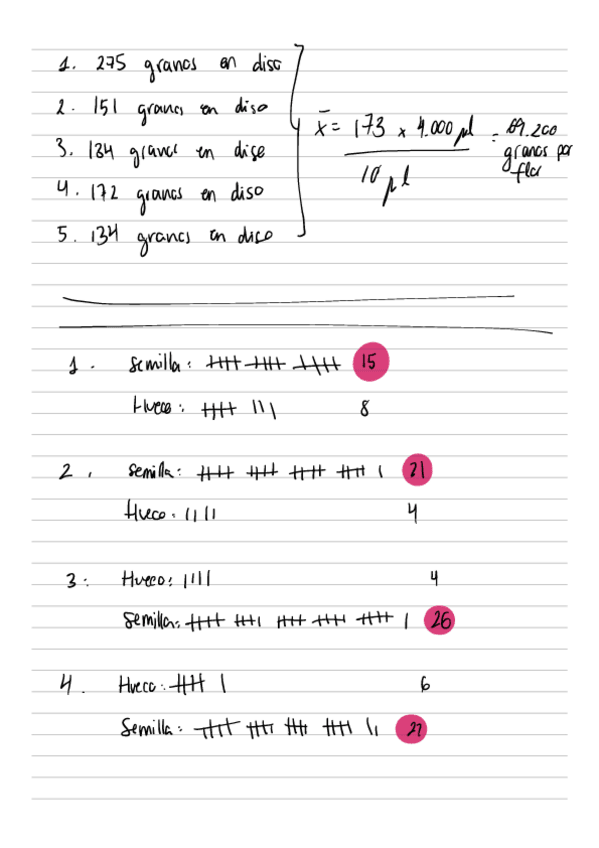 1. 275 granos en disco
2. 151 granos en disco
3. 134 granos en disco
4. 172 granos en disco
5. 134 granos en disco
x̄ = 173 x 4.000 µl / 10 µl = 69.200 granos por flor
1. Semilla: 𝍸 𝍸 𝍸 15
Hueco: 𝍸 ||| 8
2. Semilla: 𝍸 𝍸 𝍸 𝍸 | 21
Hueco: |||| 4
3. Hueco: |||| 4
Semilla: 𝍸 𝍸 𝍸 𝍸 𝍸 | 26
4. Hueco: 𝍸 | 6
Semilla: 𝍸 𝍸 𝍸 𝍸 ||